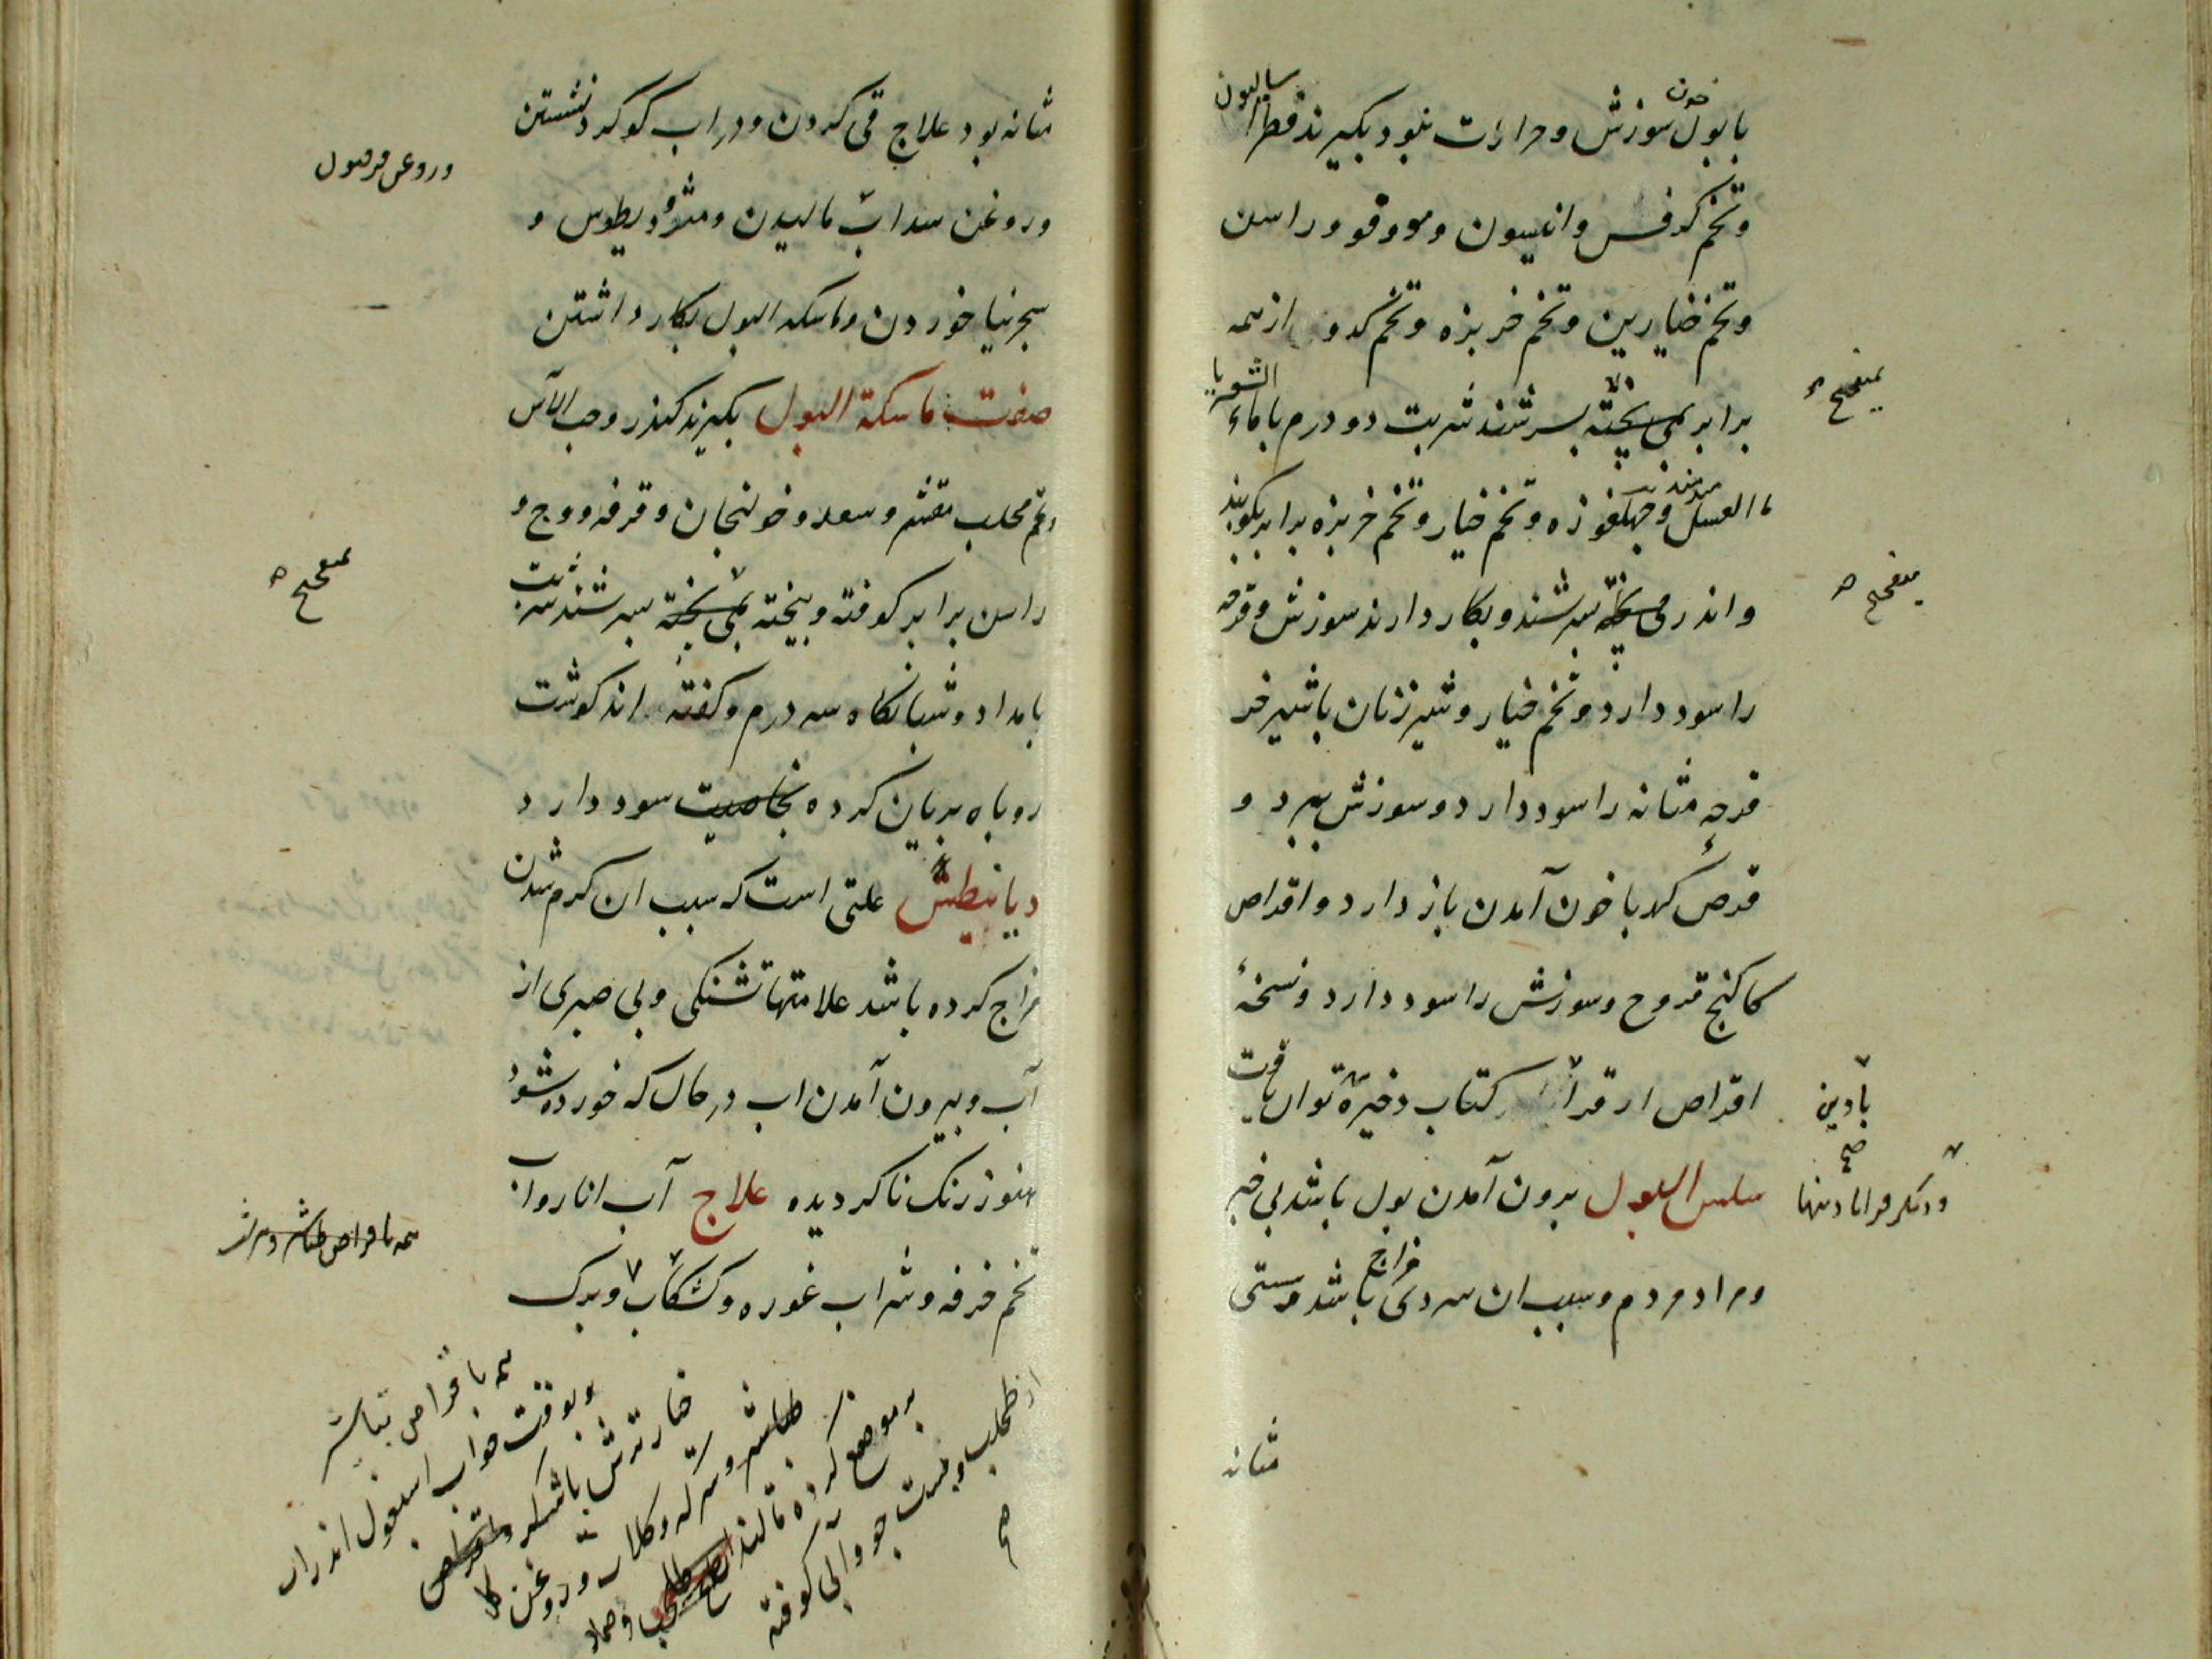 با بول خون سوزش و حرارت نبود بکیرند فطراسالیون
و تخم کرفس و انیسون و مو و فو و راسن
و تخم خیارین و تخم خربزه و تخم کدو از همه
برابر بمی پخته بسرشند شربت دو درم با ماء
ما العسل و چهلغوزه و تخم خیار و تخم خربزه برابر بکوبند
و اندر می پخته بسرشند و بکار دارند سوزش و قرحه
را سود دارد و تخم خیار و شیر زنان با شیر خر
قرحهٔ مثانه را سود دارد و سوزش ببرد و
قرص کهربا خون آمدن باز دارد و اقراص
کاکنج قروح و سوزش را سود دارد و نسخهٔ
اقراص از کتاب ذخیره توان یافت
سلس البول بیرون آمدن بول باشد بی خبر
و مراد مردم و سبب ان سردی مزاج باشد و سستی
مثانه
بمیفختج
میفختج
مثانه بود علاج قی کردن و در اب کوکرد نشستن
و روغن سداب مالیدن و مثرودیطوس و
سجزنیا خوردن و ماسکه البول بکار داشتن
صفت ماسکة البول بکیرند کندر و حب الآس
و تخم محلب مقشر و سعد و خولنجان و قرفه و وج و
راسن برابر کوفته و بیخته بمی پخته بسرشند شربت
بامداد و شبانکاه سه درم و کفته اند کوشت
روباه بریان کرده بخاصیت سود دارد
دیانیطش علتی است که سبب ان کرم شدن
مزاج کرده باشد علامتها تشنکی و بی صبری از
آب و بیرون آمدن اب در حال که خورده شود
هنوز رنک ناکردیده علاج آب انار و اب
تخم خرفه و شراب غوره و کشکاب و برک
و روغن فرفیون
بمیفختج
همه با اقراص طباشیر
همه با قراص تباشیر
و بوقت خواب اسبغول اندر اب
خیار ترش با شکر و اقراص
طباشیر و سرکه و کلاب و روغن کل
بر موضع کرده مالند و ضماد
از طحلب و پست جو و آبی کوفته
صح